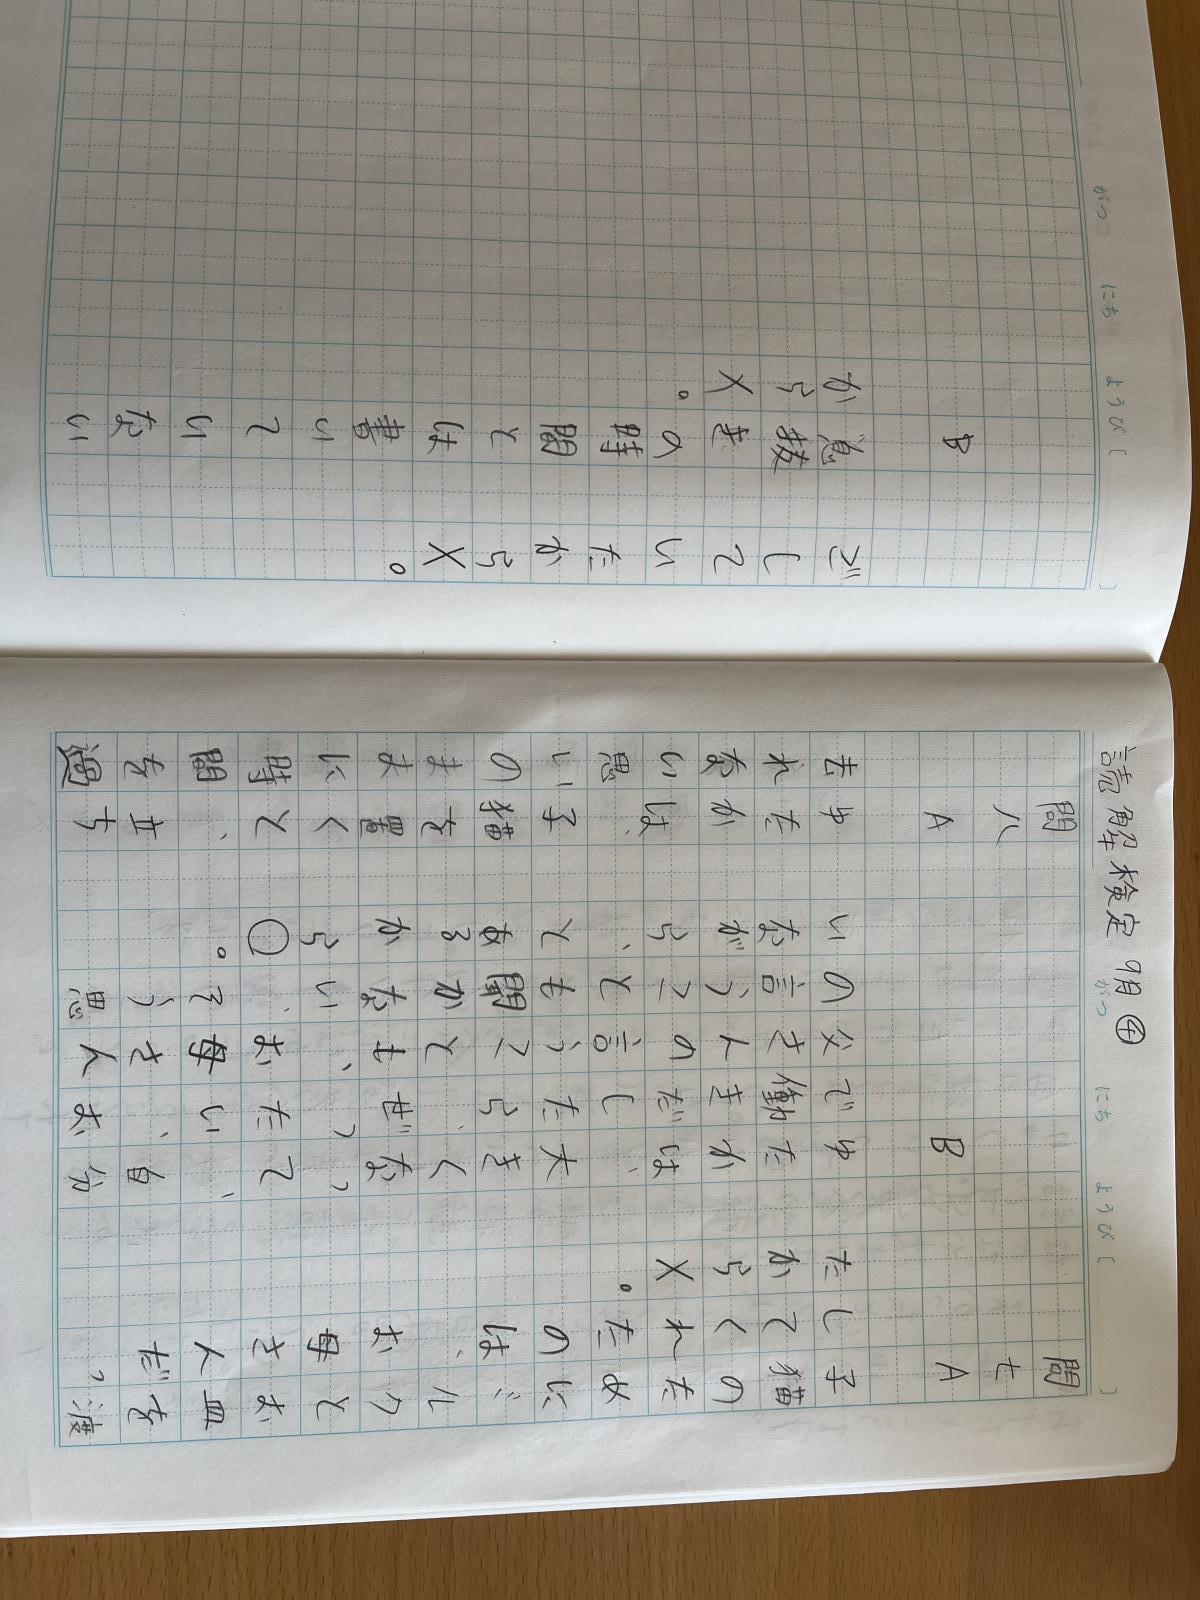 読解検定 9月④
がつ にち ようび〔 〕
問七 A 子猫のためにミルクとお皿を渡
してくれたのは、お母さんだっ
たから×。
B ゆたかは、大きくなって、自分
で働きだしたら、ぜったい、お
父さんの言うことも、お母さん
の言うことも聞かない、そう思
いながら、とあるから○。
問八 A ゆたかは、子猫を置くと、立ち
去れない思いのままに時間を過
がつ にち ようび〔 〕
ごしていたから×。
B 息抜きの時間とは書いていない
から×。